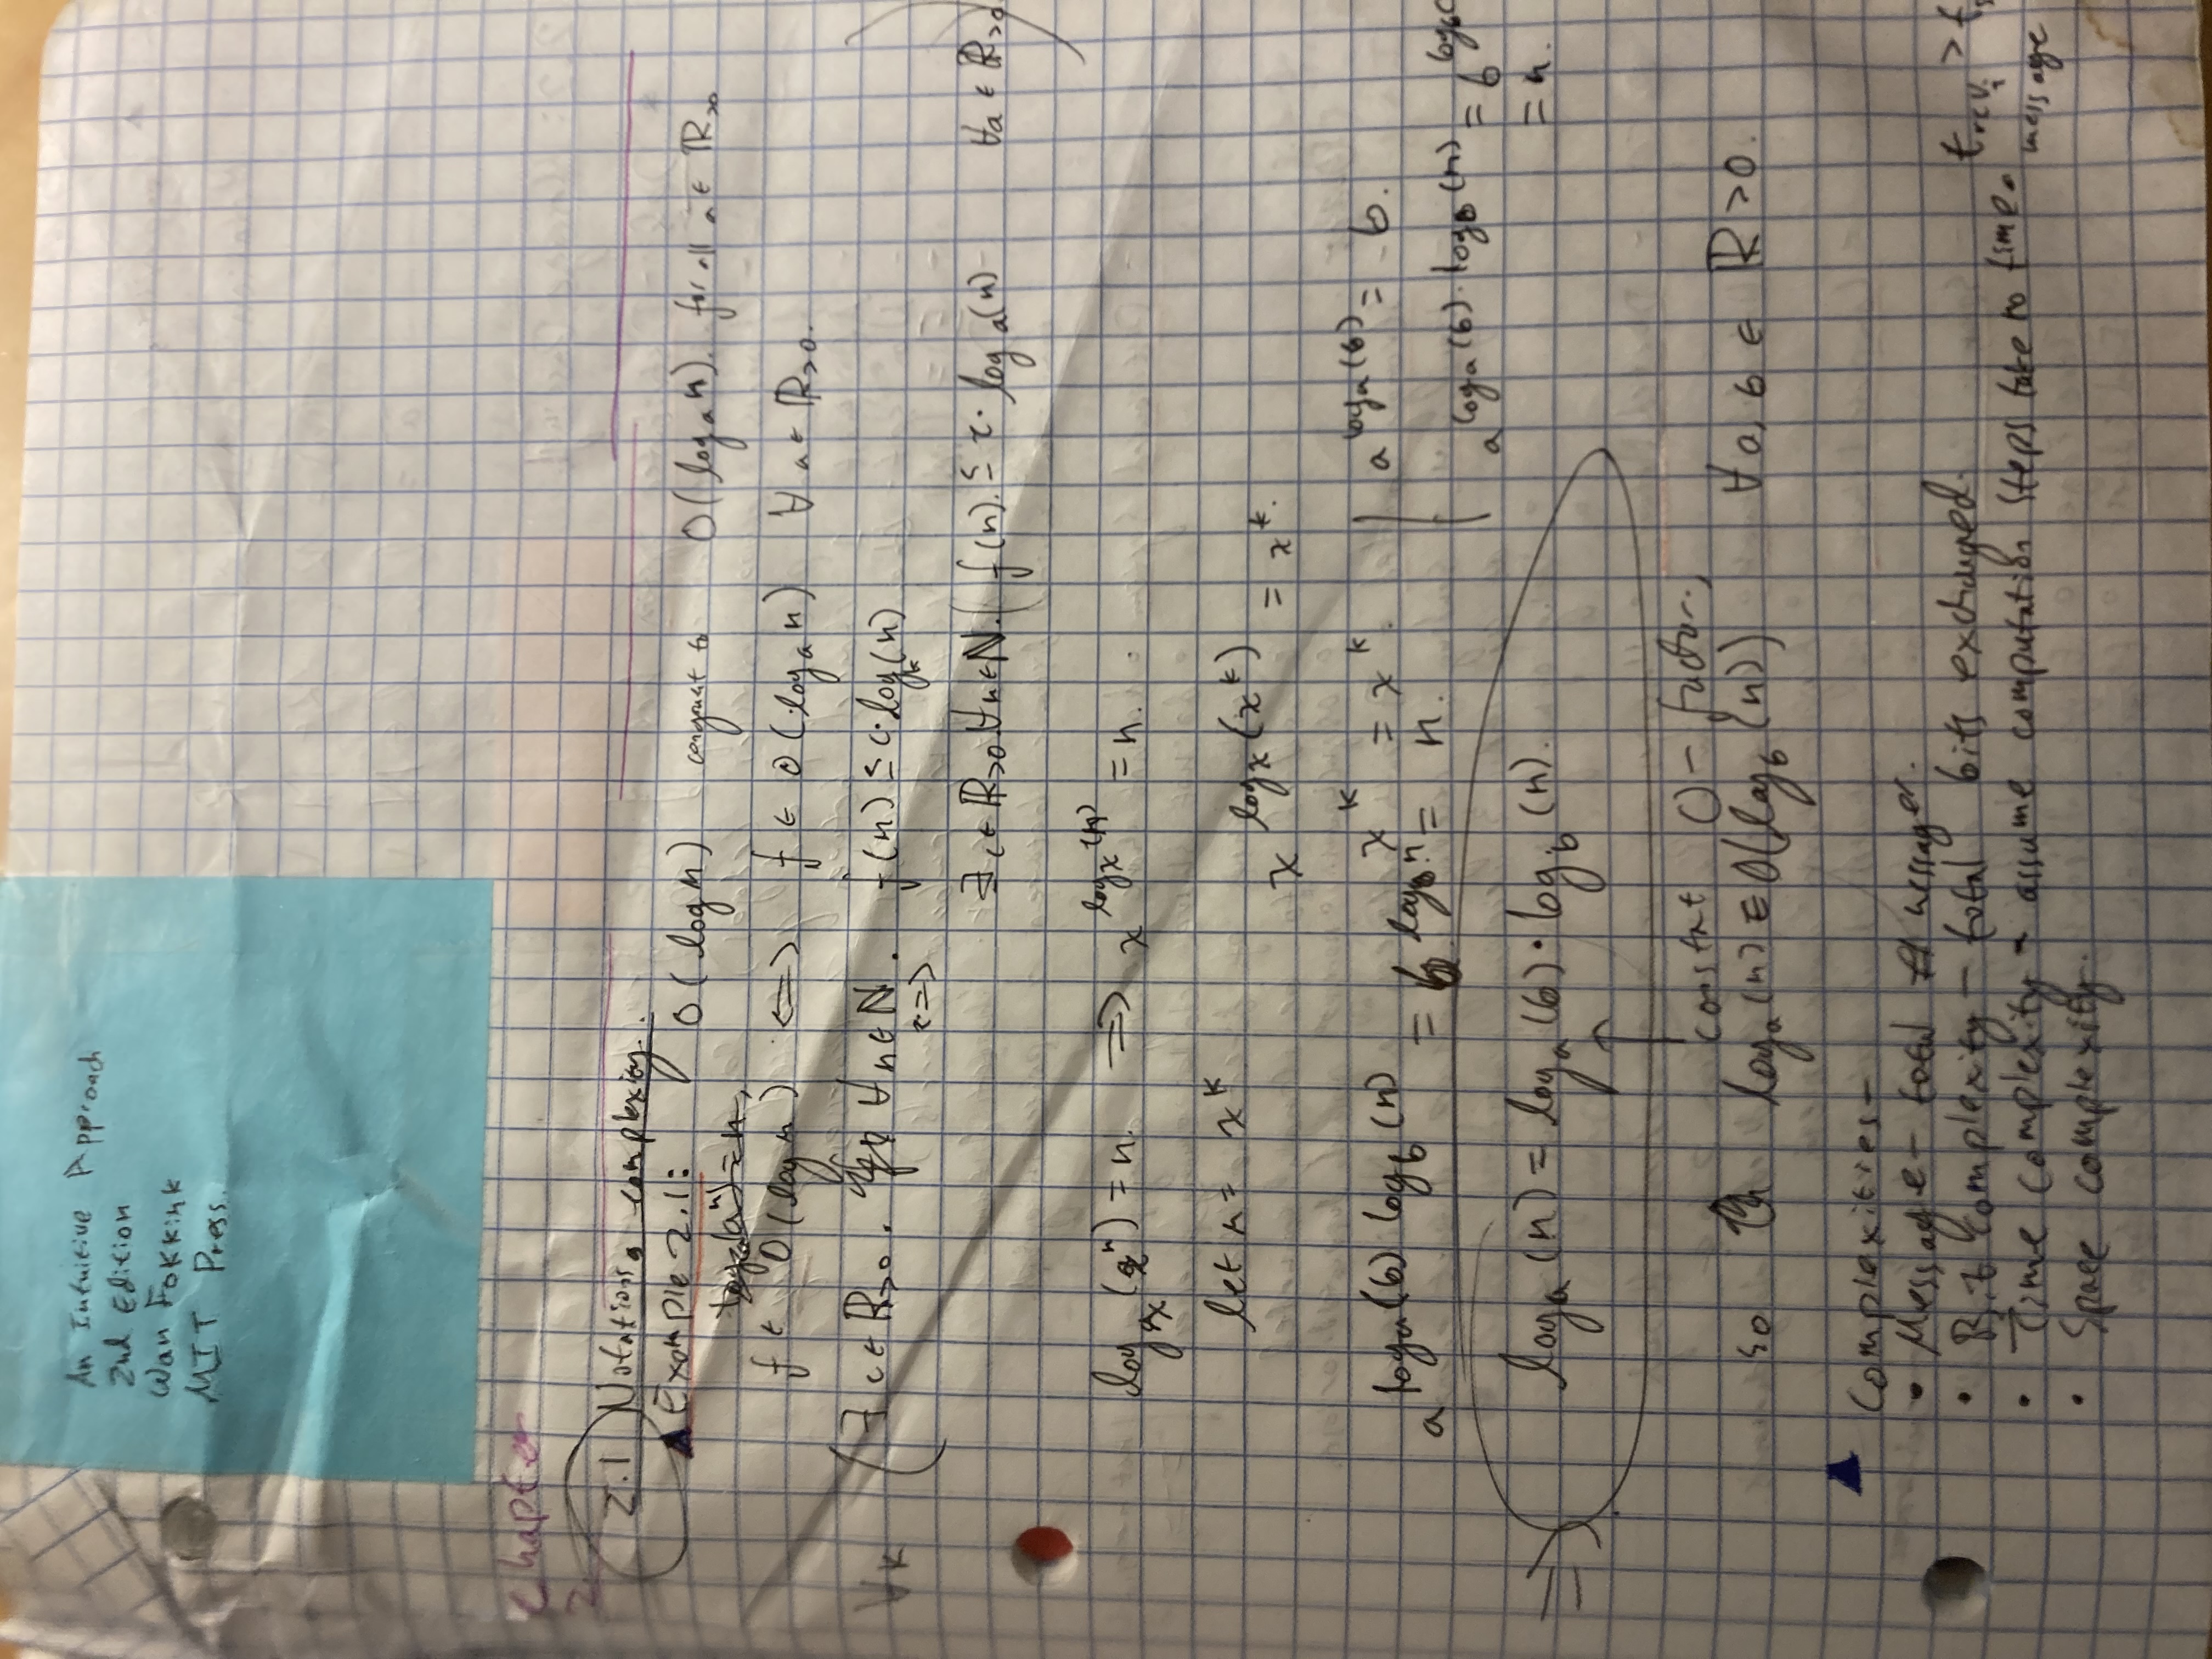 An Intuitive Approach
2nd Edition
Wan Fokkink
MIT Press.
Chapter
2
2.1 Notations complexity.
Example 2.1: O(log n) congruent to O(logₐ n). for all a ∈ ℝ>0
logₐ(aⁿ) = n,
f ∈ O(log n) <=> f ∈ O(logₐ n) ∀ a ∈ ℝ>0.
∀k ( ∃ c ∈ ℝ>0 . ∀n ∈ ℕ . f(n) ≤ c·logₖ(n)
<=>
∃ c ∈ ℝ>0 ∀n ∈ ℕ. ( f(n) ≤ c· logₐ(n) ∀a ∈ ℝ>0 )
logₓ(xⁿ) = n. => x^logₓ(n) = n.
let n = x^k
x^logₓ(x^k) = x^k.
x^k = x^k.
a^(logₐ(b) log_b(n)) = b^(log_b n) = n.
a^logₐ(b) = b.
a^(logₐ(b)·log_b(n)) = b^log_b(
= n.
=> logₐ(n) = logₐ(b) · log_b(n).
↑
constnt O- factor,
so logₐ(n) ∈ O(log_b(n)) ∀ a, b ∈ ℝ>0.
Complexities-
• Message - total # messages.
• Bit complexity - total bits exchanged.
• Time complexity - assume computation steps take no time.
t_rcv_i > t
message
• Space complexity.